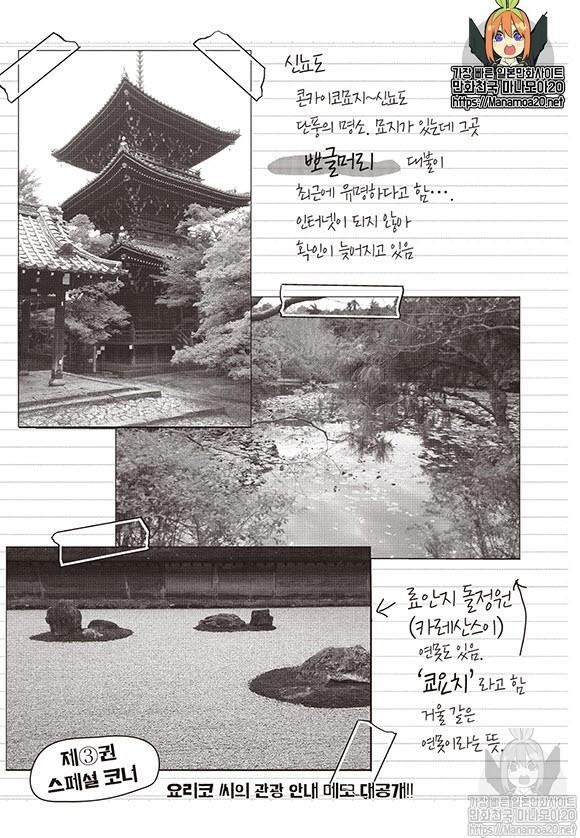 가장 빠른 일본만화사이트
만화천국 마나모아20
https://Manamoa20.net
신뇨도
콘카이코묘지~신뇨도
단풍의 명소. 묘지가 있는데 그곳
뽀글머리 대불이
최근에 유명하다고 함….
인터넷이 되지 않아
확인이 늦어지고 있음
료안지 돌정원
(카레산스이)
연못도 있음.
'쿄요치'라고 함
거울 같은
연못이라는 뜻.
제③권
스페셜 코너
요리코 씨의 관광 안내 메모 대공개!!
가장 빠른 일본만화사이트
만화천국 마나모아20
https://Manamoa20.net